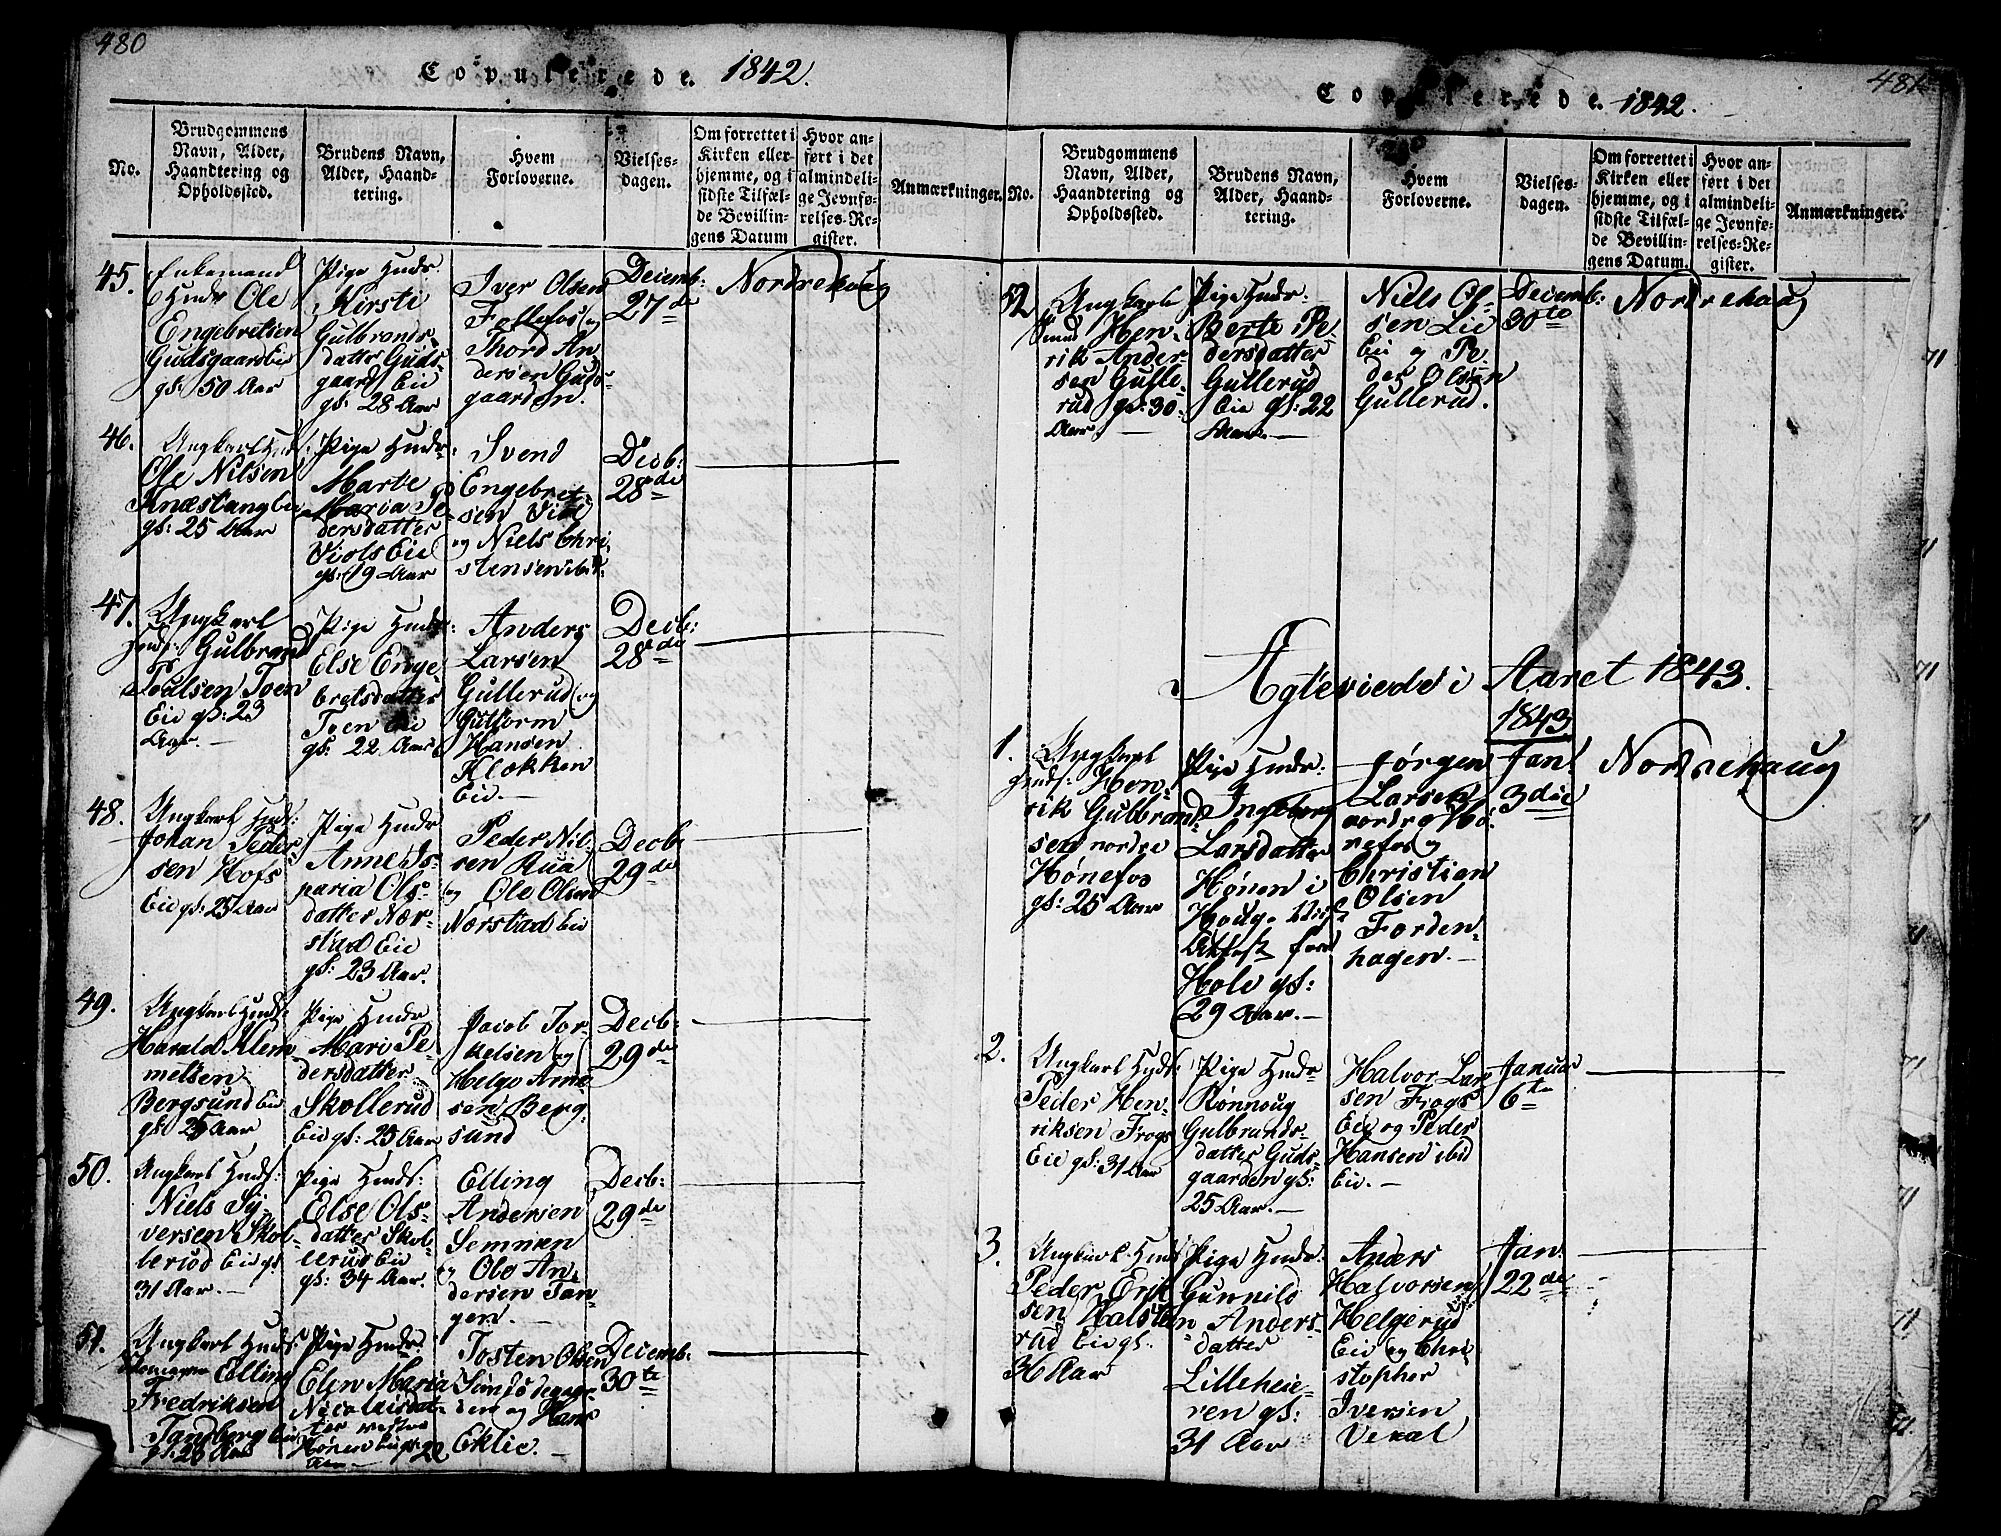 480
Copulerede. 1842.
No.
Brudgommens
Navn, Alder,
Haandtering og
Opholdssted.
Brudens Navn,
Alder, Haand-
tering.
Hvem
Forloverne.
Vielses-
dagen.
Om forrettet i
Kirken eller
hjemme, og i
sidste Tilfæl-
de Bevillin-
gens Datum
Hvor an-
ført i det
almindeli-
ge Jevnfø-
relses-Re-
gister.
Anmærkninger.
45.
Enkemand
Ole
Engebretsen
Gudsgaard Eie
gl: 50 Aar
Pige
Kirsti
Gulbrands-
datter Guds-
gaard Eie
gl: 28 Aar
Iver Olsen
Follofos og
Thord An
dersen Guds-
gaarden.
Decemb:
27de
Nordrehoug
46.
Ungkarl
Ole Nilsen
Knæstang Eie
gl: 25 Aar
Pige
Marte
Maria Pe
dersdatter
Viols Eie
gl: 19 Aar
Svend
Engebret-
sen Viul
og Niels Chri-
stensen ibid
Decb:
28de
47.
Ungkarl
Gulbrand
Poulsen Toen
Eie gl: 23
Aar.
Pige
Else Enge
bretsdatter
Toen Eie
gl: 22 Aar
Anders
Larsen
Gullerud og
Guttorm
Hansen
Klokken
Eie.
Decb:
28de
48.
Ungkarl
Johan Peder
sen Hofs
Eie gl: 25 Aar
Pige
Anne Is-
paria Ols-
datter Nær-
stad Eie
gl: 23 Aar.
Peder Nil-
sen Rua
og Ole Olsen
Nærstad Eie
Decb:
29de
49.
Ungkarl
Harald Klem
metsen
Bergsund Eie
gl: 25 Aar
Pige
Mari Pe-
dersdatter
Skollerud
Eie gl: 25 Aar
Jacob Tor-
kelsen og
Helge Arne
sen Berg-
sund
Decb:
29de
50.
Ungkarl
Niels Sy-
versen Skol-
lerud Eie gl:
31 Aar.
Pige
Else Ols-
datter Skol-
lerud Eie
gl: 34 Aar.
Elling
Andersen
Semmen
og Ole An-
dersen Tan-
gen.
Decb:
29de
51.
Ungkarl
Elling
Fredriksen
Tandberg Eie
gl: 28 Aar
Pige
Elen Maria
Nicolaisdat-
ter vestre
gl: 22
Aar
Tosten Olsen
den og Hans
Eklie.
Decemb:
30te
481
Copulerede. 1842.
No.
Brudgommens
Navn, Alder,
Haandtering og
Opholdssted.
Brudens Navn,
Alder, Haand-
tering.
Hvem
Forloverne.
Vielses-
dagen.
Om forrettet i
Kirken eller
hjemme, og i
sidste Tilfæl-
de Bevillin-
gens Datum.
Hvor an-
ført i det
almindeli-
ge Jevnfø-
relses-Re-
gister.
Anmærkninger.
52.
Ungkarl
Hen-
rik Ander-
sen Gulle-
rud gl: 30
Aar.
Pige
Berte Pe-
dersdatter
Gullerud
Eie gl: 22
Aar.
Niels Ol-
sen Lie
Eie og Pe-
der Olsen
Gullerud.
Decemb:
30te
Nordrehaug
Ægteviede i Aaret 1843.
1843
1.
Ungkarl
Hen-
rik Gulbrand-
sen nordre
Hønefos
gl: 25 Aar
Pige
Ingeborg
Larsdatter
Hønen i
Houg
Attest fra
Hole gl:
29 Aar.
Jørgen
Larsen
nordre Hø-
nefos og
Christian
Olsen
Forden-
hagen.
Jan:
3die
Nordrehaug
2.
Ungkarl
Peder Hen-
riksen Frogs
Eie gl: 31 Aar
Pige
Rønnoug
Gulbrands-
datter Guds-
gaarden gl:
25 Aar.
Halvor Lar
sen Frogs
Eie og Peder
Hansen ibid
Eie.
Januar
6te
3.
Ungkarl
Peder Erik
sen Halstein
rud Eie gl:
36 Aar
Pige
Gunnild
Anders-
datter
Lilleheie-
ren gl:
31 Aar
Anders
Halvorsen
Helgerud
Eie og Chri
stopher
Iversen
Vexal
Jan:
22de